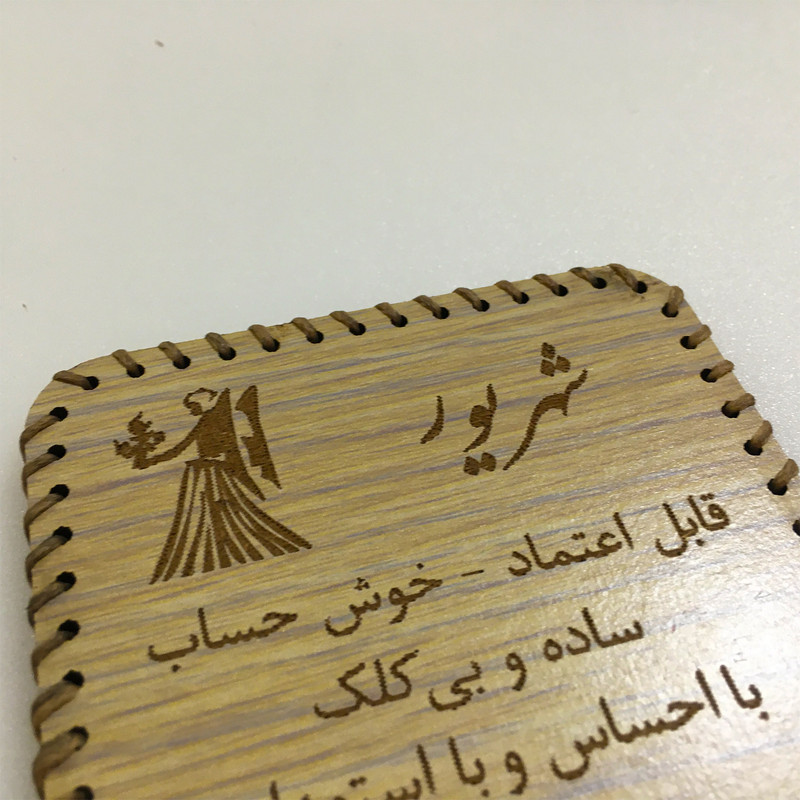 شهریور
قابل اعتماد - خوش حساب
ساده و بی کلک
با احساس و با